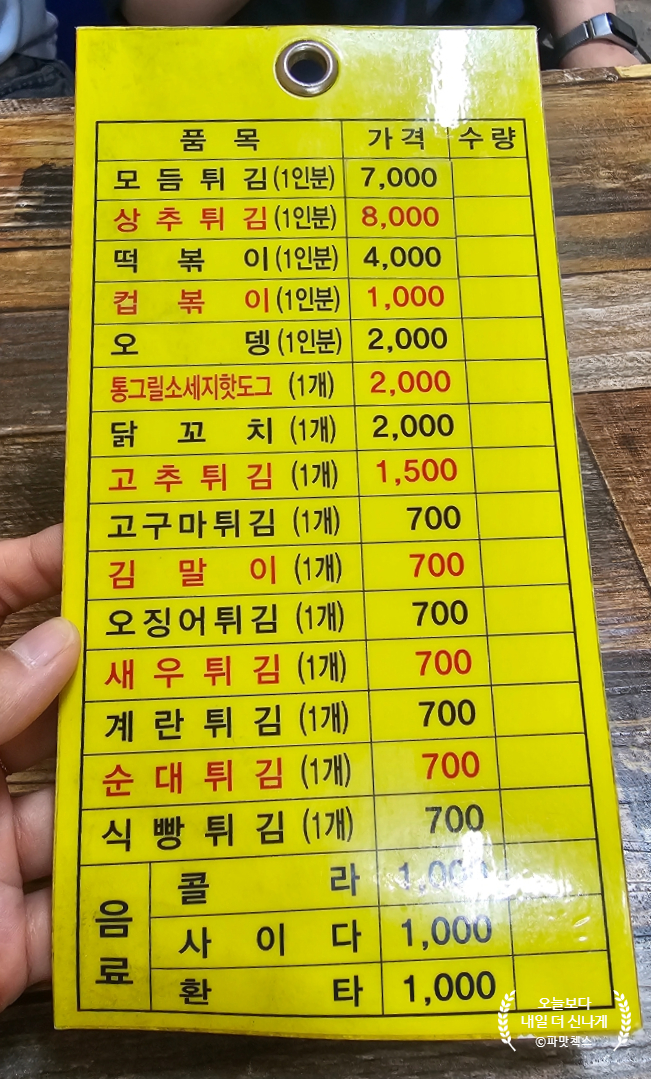 품 목 가 격 수 량
모 듬 튀 김 (1인분) 7,000
상 추 튀 김 (1인분) 8,000
떡 볶 이 (1인분) 4,000
컵 볶 이 (1인분) 1,000
오 뎅 (1인분) 2,000
통그릴소세지핫도그 (1개) 2,000
닭 꼬 치 (1개) 2,000
고 추 튀 김 (1개) 1,500
고구마튀김 (1개) 700
김 말 이 (1개) 700
오징어튀김 (1개) 700
새 우 튀 김 (1개) 700
계 란 튀 김 (1개) 700
순 대 튀 김 (1개) 700
식 빵 튀 김 (1개) 700
음료
콜 라 1,000
사 이 다 1,000
환 타 1,000
오늘보다
내일 더 신나게
©파맛첵스